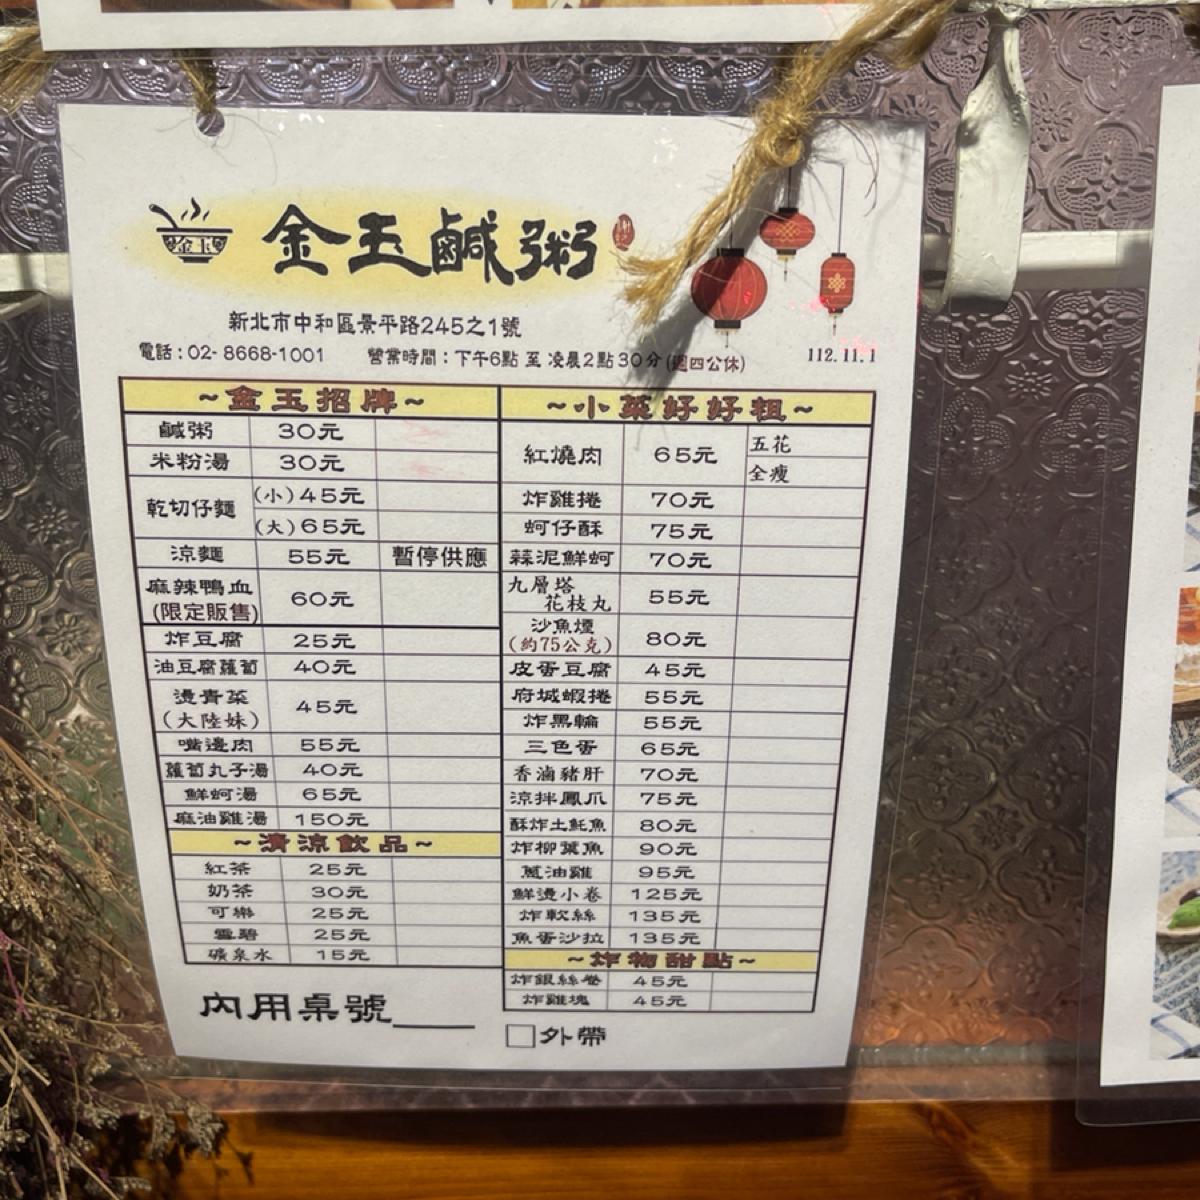 金玉
金玉鹹粥
新北市中和區景平路245之1號
電話：02-8668-1001 營業時間：下午6點 至 凌晨2點30分(週四公休) 112.11.1
～金玉招牌～
鹹粥 30元
米粉湯 30元
乾切仔麵 (小)45元
(大)65元
涼麵 55元 暫停供應
麻辣鴨血
(限定販售) 60元
炸豆腐 25元
油豆腐蘿蔔 40元
燙青菜
(大陸妹) 45元
嘴邊肉 55元
蘿蔔丸子湯 40元
鮮蚵湯 65元
麻油雞湯 150元
～清涼飲品～
紅茶 25元
奶茶 30元
可樂 25元
雪碧 25元
礦泉水 15元
內用桌號____
～小菜好好粗～
紅燒肉 65元 五花
全瘦
炸雞捲 70元
蚵仔酥 75元
蒜泥鮮蚵 70元
九層塔
花枝丸 55元
沙魚煙
(約75公克) 80元
皮蛋豆腐 45元
府城蝦捲 55元
炸黑輪 55元
三色蛋 65元
香滷豬肝 70元
涼拌鳳爪 75元
酥炸土魠魚 80元
炸柳葉魚 90元
蔥油雞 95元
鮮燙小卷 125元
炸軟絲 135元
魚蛋沙拉 135元
～炸物甜點～
炸銀絲卷 45元
炸雞塊 45元
□外帶